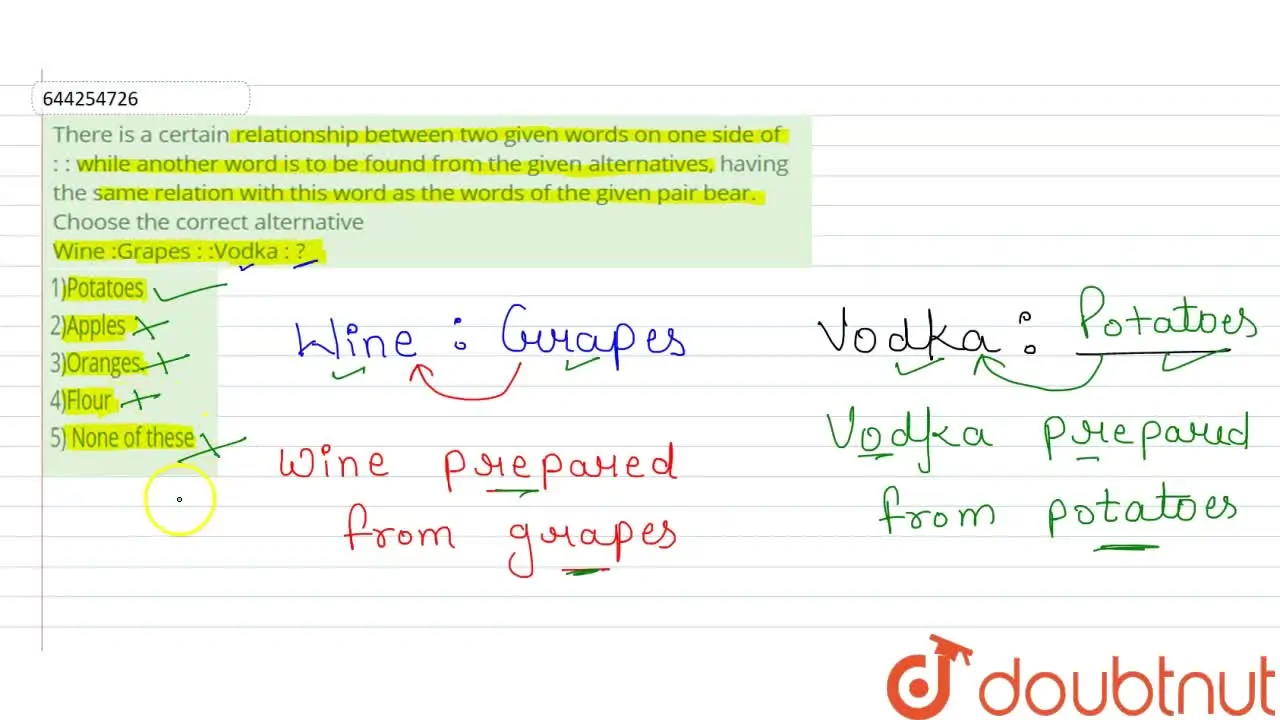 644254726
There is a certain relationship between two given words on one side of
: : while another word is to be found from the given alternatives, having
the same relation with this word as the words of the given pair bear.
Choose the correct alternative
Wine :Grapes : :Vodka : ?
1)Potatoes
2)Apples
3)Oranges
4)Flour
5) None of these
Wine : Grapes
Wine prepared
from grapes
Vodka : Potatoes
Vodka prepared
from potatoes
doubtnut